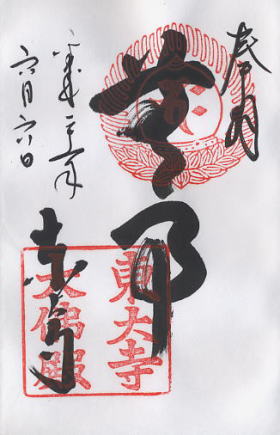 奉拝
華厳
東大寺
平成二十二年
六月六日
東大寺
大佛殿